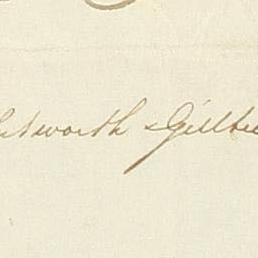 tsworth & Gilbe